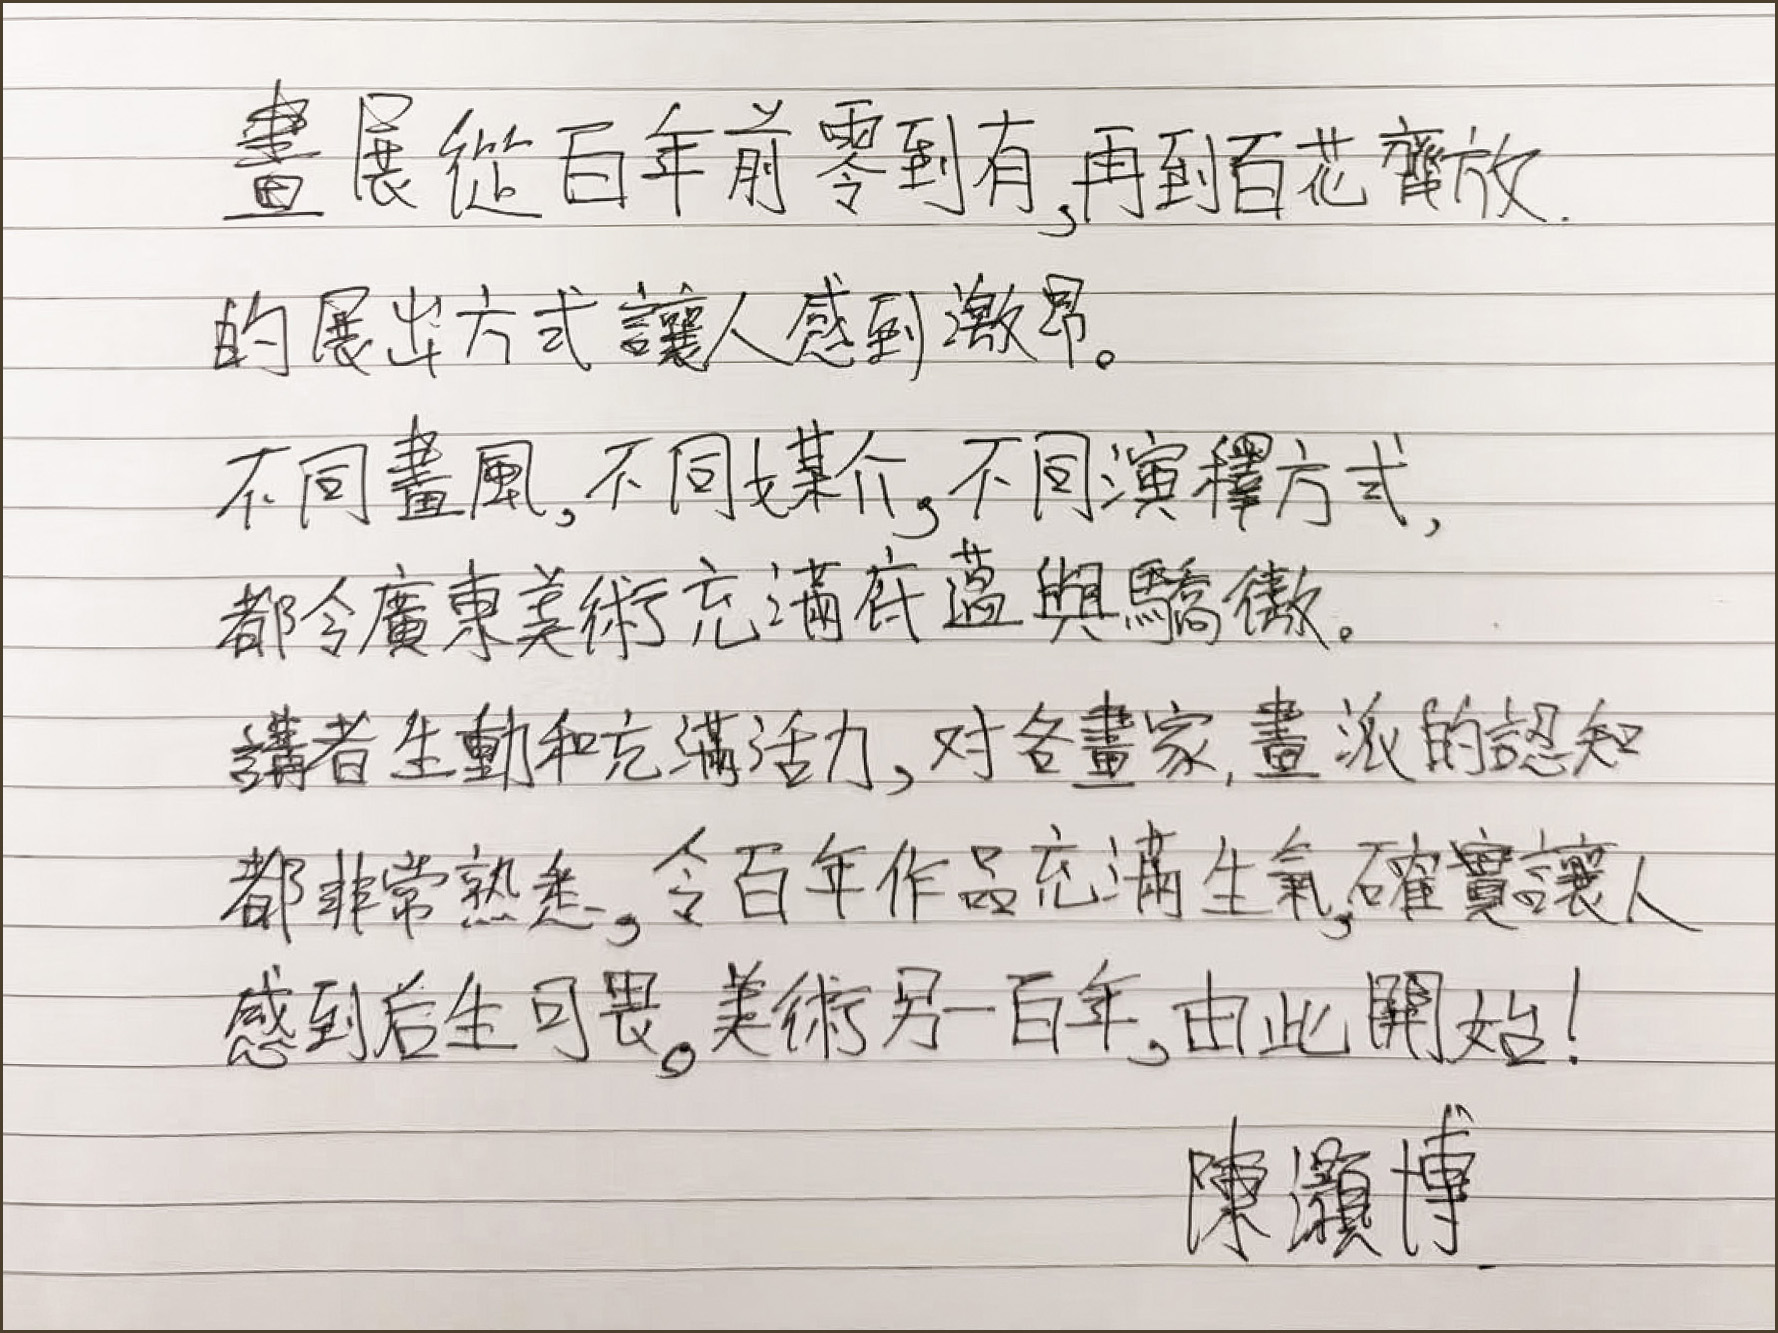 畫展從百年前零到有,再到百花齊放.
的展出方式讓人感到激昂。
不同畫風,不同媒介,不同演釋方式,
都令廣東美術充滿底蘊與驕傲。
講者生動和充滿活力,对各畫家,畫派的認知
都非常熟悉,令百年作品充滿生氣,確實讓人
感到后生可畏。美術另一百年,由此開始!
陳灝博